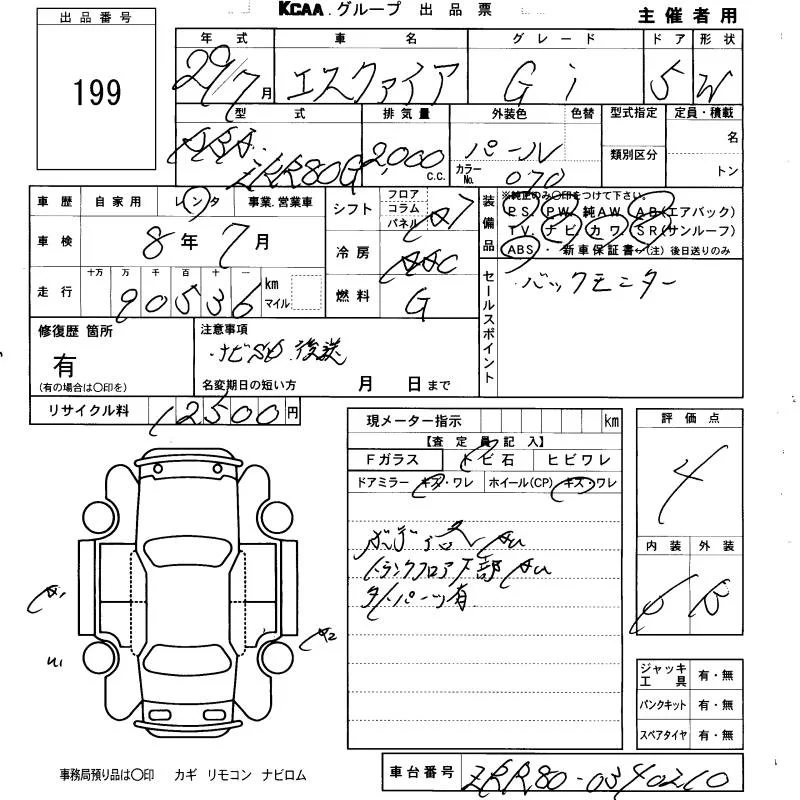 KCAA.グループ 出品票
主催者用
出品番号
199
年式 車名 グレード ドア 形状
29/7月 エスクァイア Gi 5 W
型式 排気量 外装色 色替 型式指定 定員・積載
ZRR80G 2,000 c.c. パール
カラーNo. 070
類別区分
名
トン
車歴 自家用 レンタ 事業.営業車
シフト フロア コラム パネル
車検 8年7月
冷房 AAC
走行 十万 万 千 百 十 一
90536 km マイル
燃料 G
装備品
※純正のみ〇印をつけて下さい。
PS. PW. 純AW. AB(エアバック)
TV. ナビ. カワ. SR(サンルーフ)
ABS・新車保証書←(注) 後日送りのみ
セールスポイント
・バックモニター
修復歴 箇所
有
(有の場合は〇印を)
注意事項
・ナビSD.後送
名変期日の短い方 月 日まで
リサイクル料 12500円
現メーター指示 km
【査定員記入】
Fガラス トビ石 ヒビワレ
ドアミラー キズ・ワレ ホイール(CP) キズ・ワレ
トランクフロア下部
外パーツ有
評価点
4
内装 外装
B
A2
ジャッキ工具 有・無
パンクキット 有・無
スペアタイヤ 有・無
事務局預り品は〇印 カギ リモコン ナビロム
車台番号 ZRR80-0340210